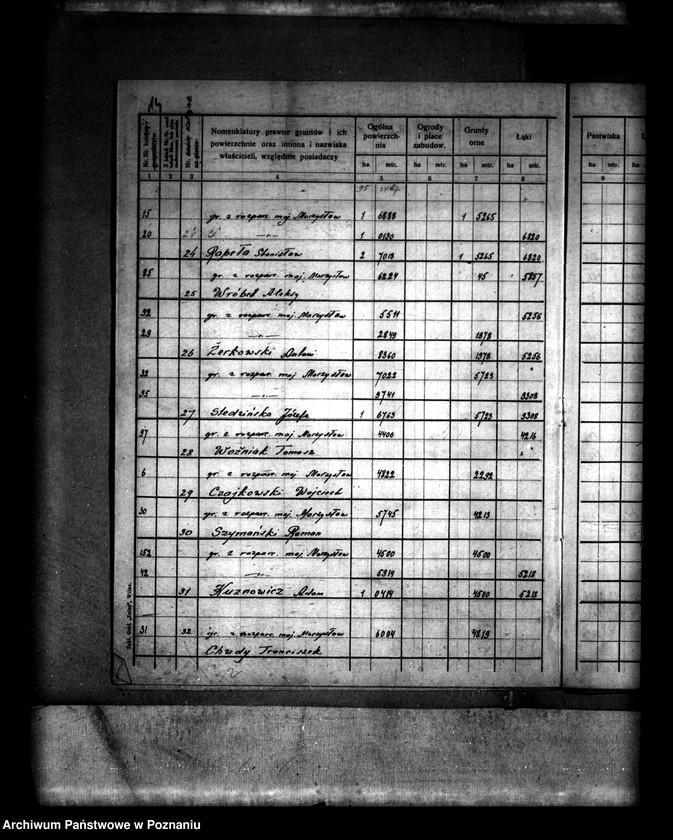 14
Nr. Nr. kolejny gospodarstw
Nomenklatury prawne gruntów i ich powierzchnie oraz imiona i nazwiska właścicieli, względnie posiadaczy
Ogólna powierzchnia
Ogrody i place zabudow.
Grunty orne
Łąki
Pastwiska
ha mtr. ha mtr. ha mtr. ha mtr. ha mtr.
1 2 3 4 5 6 7 8 9
95
15 gr. z rozparc. maj. Morzysław 1 6888 1 5265
20 1 0130 6820
24 Rapeła Stanisław 2 7018 1 5265 6820
85 gr. z rozparc. maj. Morzysław 6224 45 5857
25 Wróbel Aleksy
92 gr. z rozparc. maj. Morzysław 5511 5256
29 2849 1978
26 Żerkowski Antoni 8360 1978 5256
32 gr. z rozparc. maj. Morzysław 7022 5723
95 9741 9308
27 Sledzińska Józefa 1 6763 5723 9308
97 gr. z rozparc. maj. Morzysław 4406 4216
28 Woźniak Tomasz
6 gr. z rozparc. maj. Morzysław 4822 2292
29 Czajkowski Wojciech
30 gr. z rozparc. maj. Morzysław 5745 4213
30 Szymański Roman
152 gr. z rozparc. maj. Morzysław 4500 4500
42 5914 5218
31 Kuznowicz Adam 1 0414 4500 5218
31 32 gr. z rozparc. maj. Morzysław 6004 4819
Chudy Franciszek
Archiwum Państwowe w Poznaniu